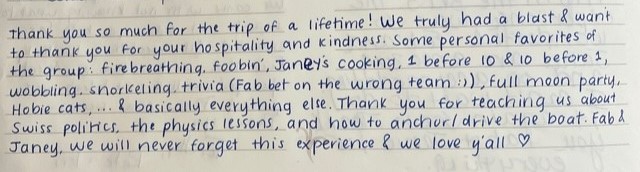 Thank you so much for the trip of a lifetime! We truly had a blast & want
to thank you for your hospitality and kindness. Some personal favorites of
the group: firebreathing, foobin', Janey's cooking, 1 before 10 & 10 before 1,
wobbling, snorkeling, trivia (Fab bet on the wrong team :)), full moon party,
Hobie cats, ... & basically everything else. Thank you for teaching us about
Swiss politics, the physics lessons, and how to anchor/drive the boat. Fab &
Janey, we will never forget this experience & we love y'all ♡